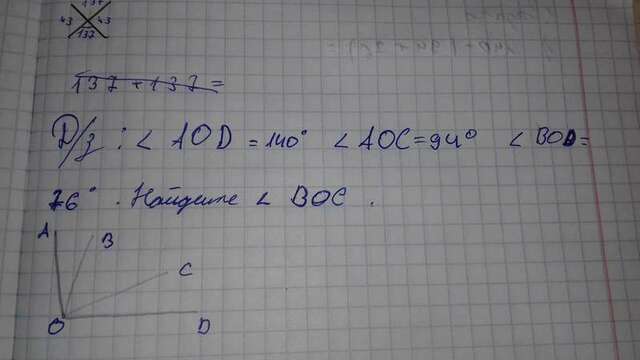 137
43 43
137
137 + 137 =
Д/з : ∠ AOD = 140° ∠ AOC = 94° ∠ BOD =
76° . Найдите ∠ BOC .
A
B
C
O
D